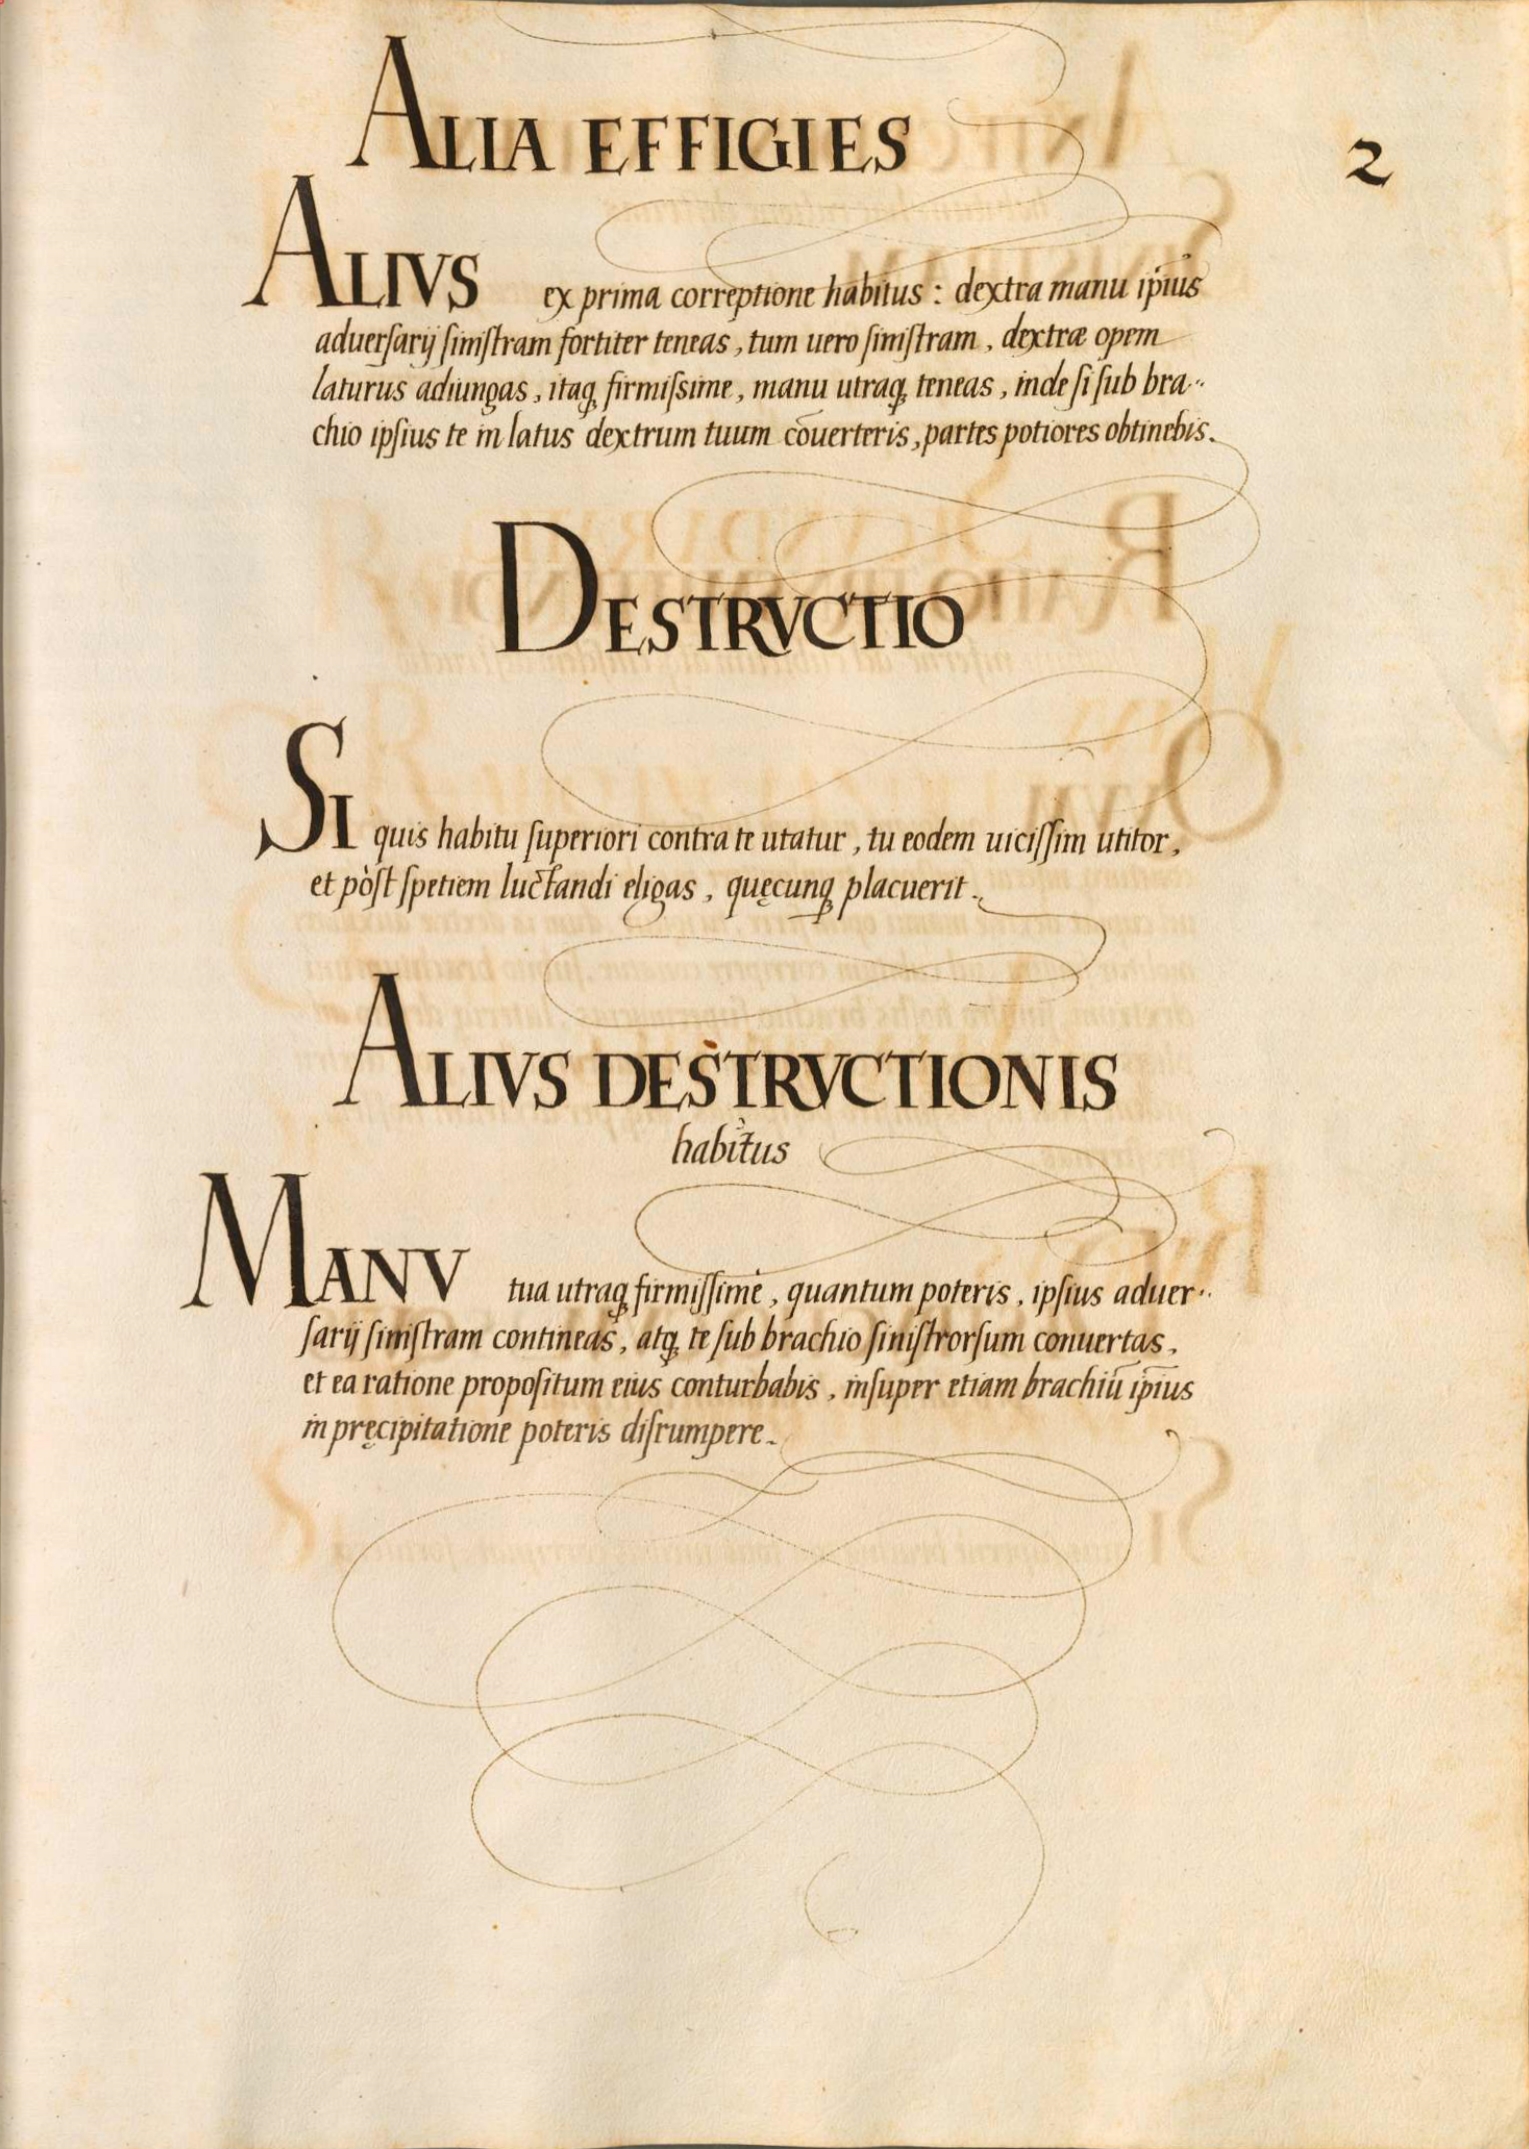 2
ALIA EFFIGIES
ALIVS ex prima correptione habitus : dextra manu ip̄ius
aduerſarij ſiniſtram fortiter teneas, tum uero ſiniſtram, dextræ opem
laturus adiungas, itaq̨ firmiſsime, manu utraq̨ teneas, inde ſi ſub bra-
chio ipſius te in latus dextrum tuum cōuerteris, partes potiores obtinebis.
DESTRVCTIO
SI quis habitu ſuperiori contra te utatur, tu eodem uiciſſim utitor,
et pòſt ſpetiem luctandi eligas, quęcunq̨ placuerit.
ALIVS DESTRVCTIONIS
habitus
MANV tua utraq̨ firmiſſime, quantum poteris, ipſius aduer-
ſarij ſiniſtram contineas, atq̨ te ſub brachio ſiniſtrorſum conuertas,
et ea ratione propoſitum eius conturbabis, inſuper etiam brachiū ip̄ius
in pręcipitatione poteris diſrumpere.